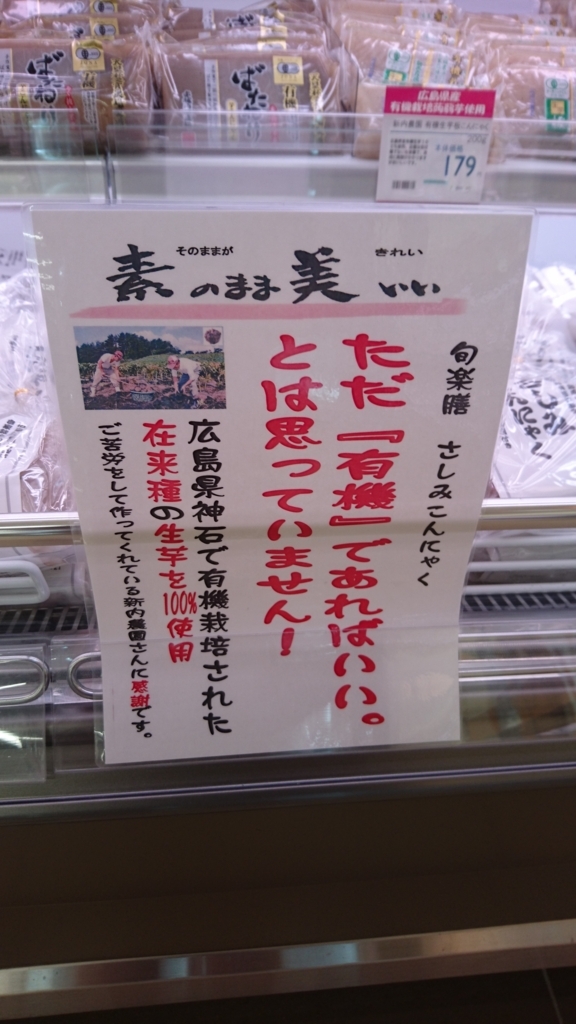 広島県産
有機栽培蒟蒻芋使用
200g
本体価格
179
そのままが
きれい
素のまま美いい
旬楽膳 さしみこんにゃく
ただ『有機』であればいい。
とは思っていません！
広島県神石で有機栽培された
在来種の生芋を100%使用
ご苦労をして作ってくれている新内農園さんに感謝です。